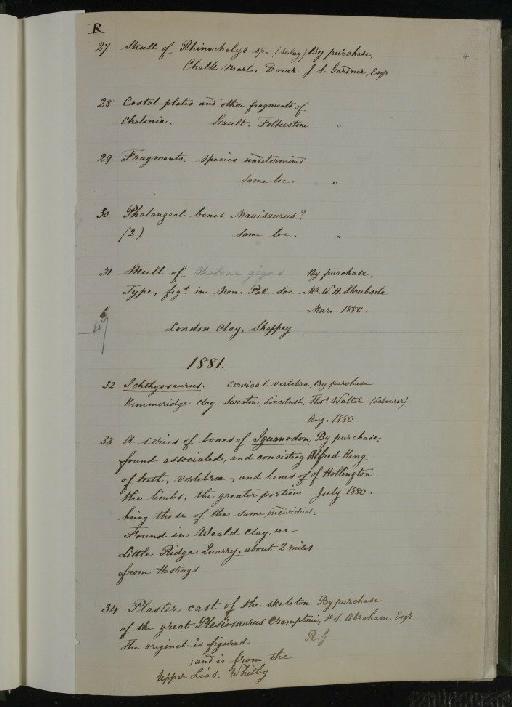 R
27 Skull of Rhinochelys sp. (Seeley) By purchase,
Chalk Marl. Dover J. S. Gardner, Esqr
28 Costal plates and other fragments of
Chelonia. Gault. Folkestone "
29 Fragments. Species undetermined
same loc. "
30 Phalangeal bones Mausisaurus?
(2) same loc. "
31 Skull of gigas By purchase.
Type, figd in Mon. Pal. Soc. Mr W. H. Shrubsole
Mar. 1880.
London Clay, Sheppey
1881.
32 Ichthyosaurus. Cervical vertebra. By purchase
Kimmeridge Clay Swindon, Thos Walter
Aug. 1880
33 A series of bones of Iguanodon, By purchase,
found associated, and consisting Alfred King
of teeth, vertebrae, and bones of of Hollington
the limbs, the greater portion July 1880.
being those of the same individual.
Found in Weald Clay, in
Little Ridge Quarry, about 2 miles
from Hastings
34 Plaster cast of the skeleton By purchase
of the great Plesiosaurus Cramptoni, H. S. Abraham. Esqr
the original is figured
; and is from the
Upper Lias. Whitby